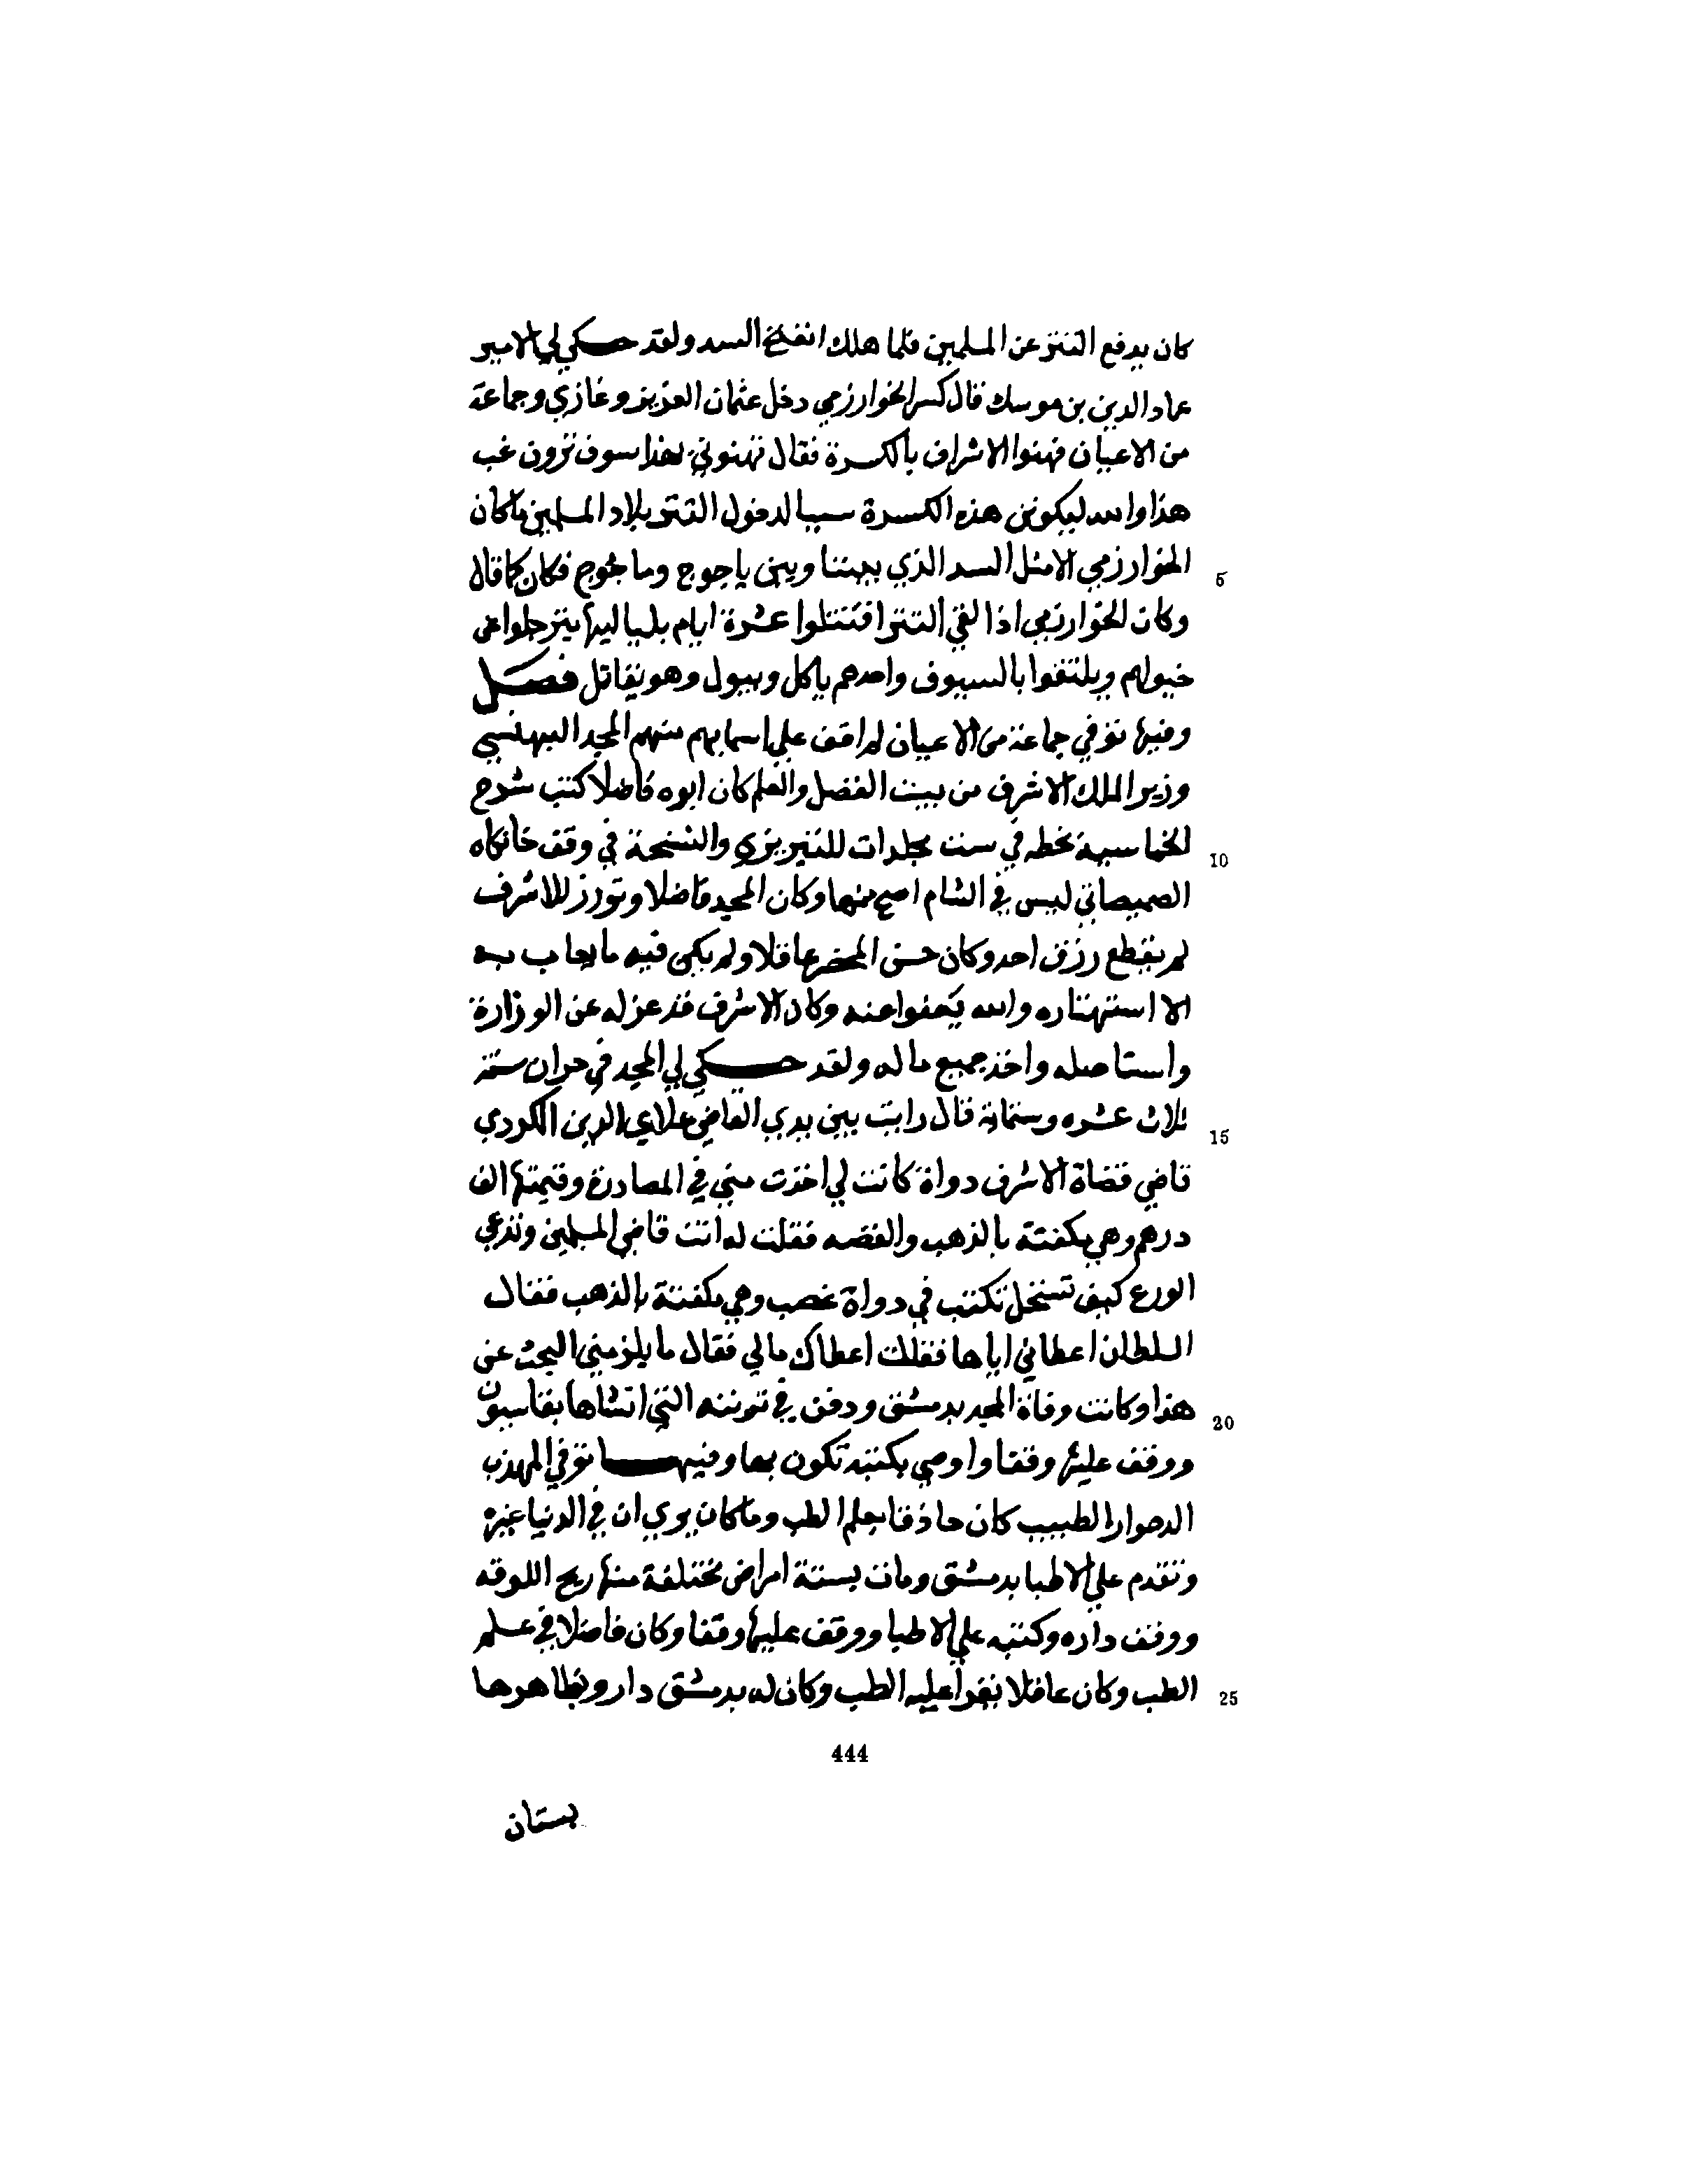 كان يدفع التتر عن المسلمين فلما هلك انفتح السد ولقد حكي لي الامير
عماد الدين بن موسك قال كسر الخوارزمي دخل عثمان العزيز وغازي وجماعة
من الاعيان فهنوا الاشراف بالكسرة فقال تهنوني بهذا سوف ترون غب
هذا والله ليكونن هذه الكسرة سببا لدخول التتر بلاد المسلمين ماكان
الخوارزمي الا مثل السد الذي بيننا وبين ياجوج وماجوج فكان كما قال
5
وكان الخوارزمي اذا لقي التتر اقتتلوا عشرة ايام بلياليها يترجلوا عن
خيولهم ويلتقوا بالسيوف واحدهم ياكل ويبول وهو يقاتل فصل
وفيها توفي جماعة من الاعيان لم اقف علي اسمايهم منهم المجد البهنسي
وزير الملك الاشرف من بيت الفضل والعلم كان ابوه فاضلا كتب شرح
الحماسية بخطه في ست مجلدات للتبريزي والنسخة في وقف خانكاه
10
الصميصاتي ليس في الشام اصح منها وكان المجد فاضلا وتوزر للاشرف
لم يقطع رزق احد وكان حسن المحضر عاقلا ولم يكن فيه ما يعاب به
الا استهتاره والله يعفوا عنه وكان الاشرف قد عزله عن الوزارة
واستاصله واخذ جميع ماله ولقد حكي لي المجد في حران سنة
ثلاث عشره وستماية قال رايت بين يدي القاضي علاي الدين الكردي
15
قاضي قضاة الاشرف دواة كانت لي اخذت مني في المصادرة وقيمتها الف
درهم وهي مكفتة بالذهب والفضه فقلت له انت قاضي المسلمين وتدعي
الورع كيف تستحل تكتب في دواة غصب وهي مكفتة بالذهب فقال
السلطان اعطاني اياها فقلت اعطاك مالي فقال ما يلزمني البحث عن
هذا وكانت وفاة المجد بدمشق ودفن في تربته التي انشاها بقاسيون
20
ووقف عليها وقفا واوصي بكتبه تكون بها وفيها توفي المهذب
الدخوار الطبيب كان حاذقا بعلم الطب وماكان يري ان في الدنيا غيره
وتقدم علي الاطبا بدمشق ومات بستة امراض مختلفة منها ريح اللوقه
ووقف داره وكتبه علي الاطبا ووقف عليها وقفا وكان فاضلا في علم
الطب وكان عاقلا يقرا عليه الطب وكان له بدمشق دار وبظاهرها
25
444
بستان